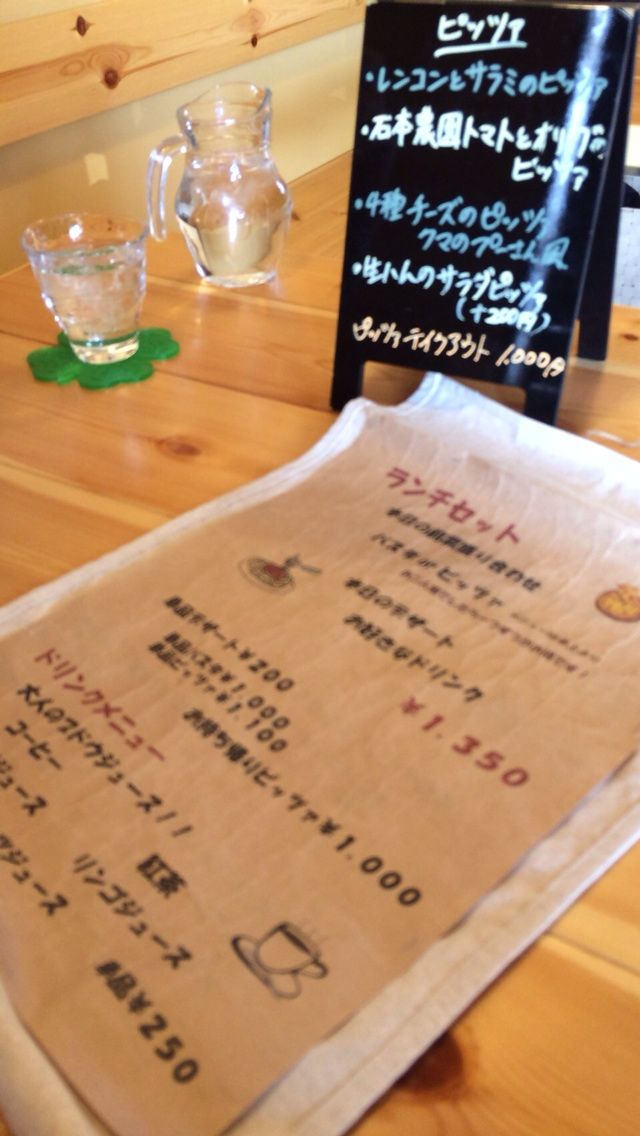 ピッツァ
・レンコンとサラミのピッツァ
・石本農園トマトとオリーブの
ピッツァ
・4種チーズのピッツァ
クマのプーさん風
・生ハムのサラダピッツァ
(+200円)
ピッツァテイクアウト 1,000円
ランチセット
本日の前菜盛り合わせ
パスタ or ピッツァ
本日のデザート
お好きなドリンク
¥1.350
単品デザート¥200
単品パスタ¥1,000
単品ピッツァ¥1.100
お持ち帰りピッツァ¥1.000
ドリンクメニュー
大人のブドウジュース!!
コーヒー
紅茶
ジュース
リンゴジュース
ジュース
単品¥250